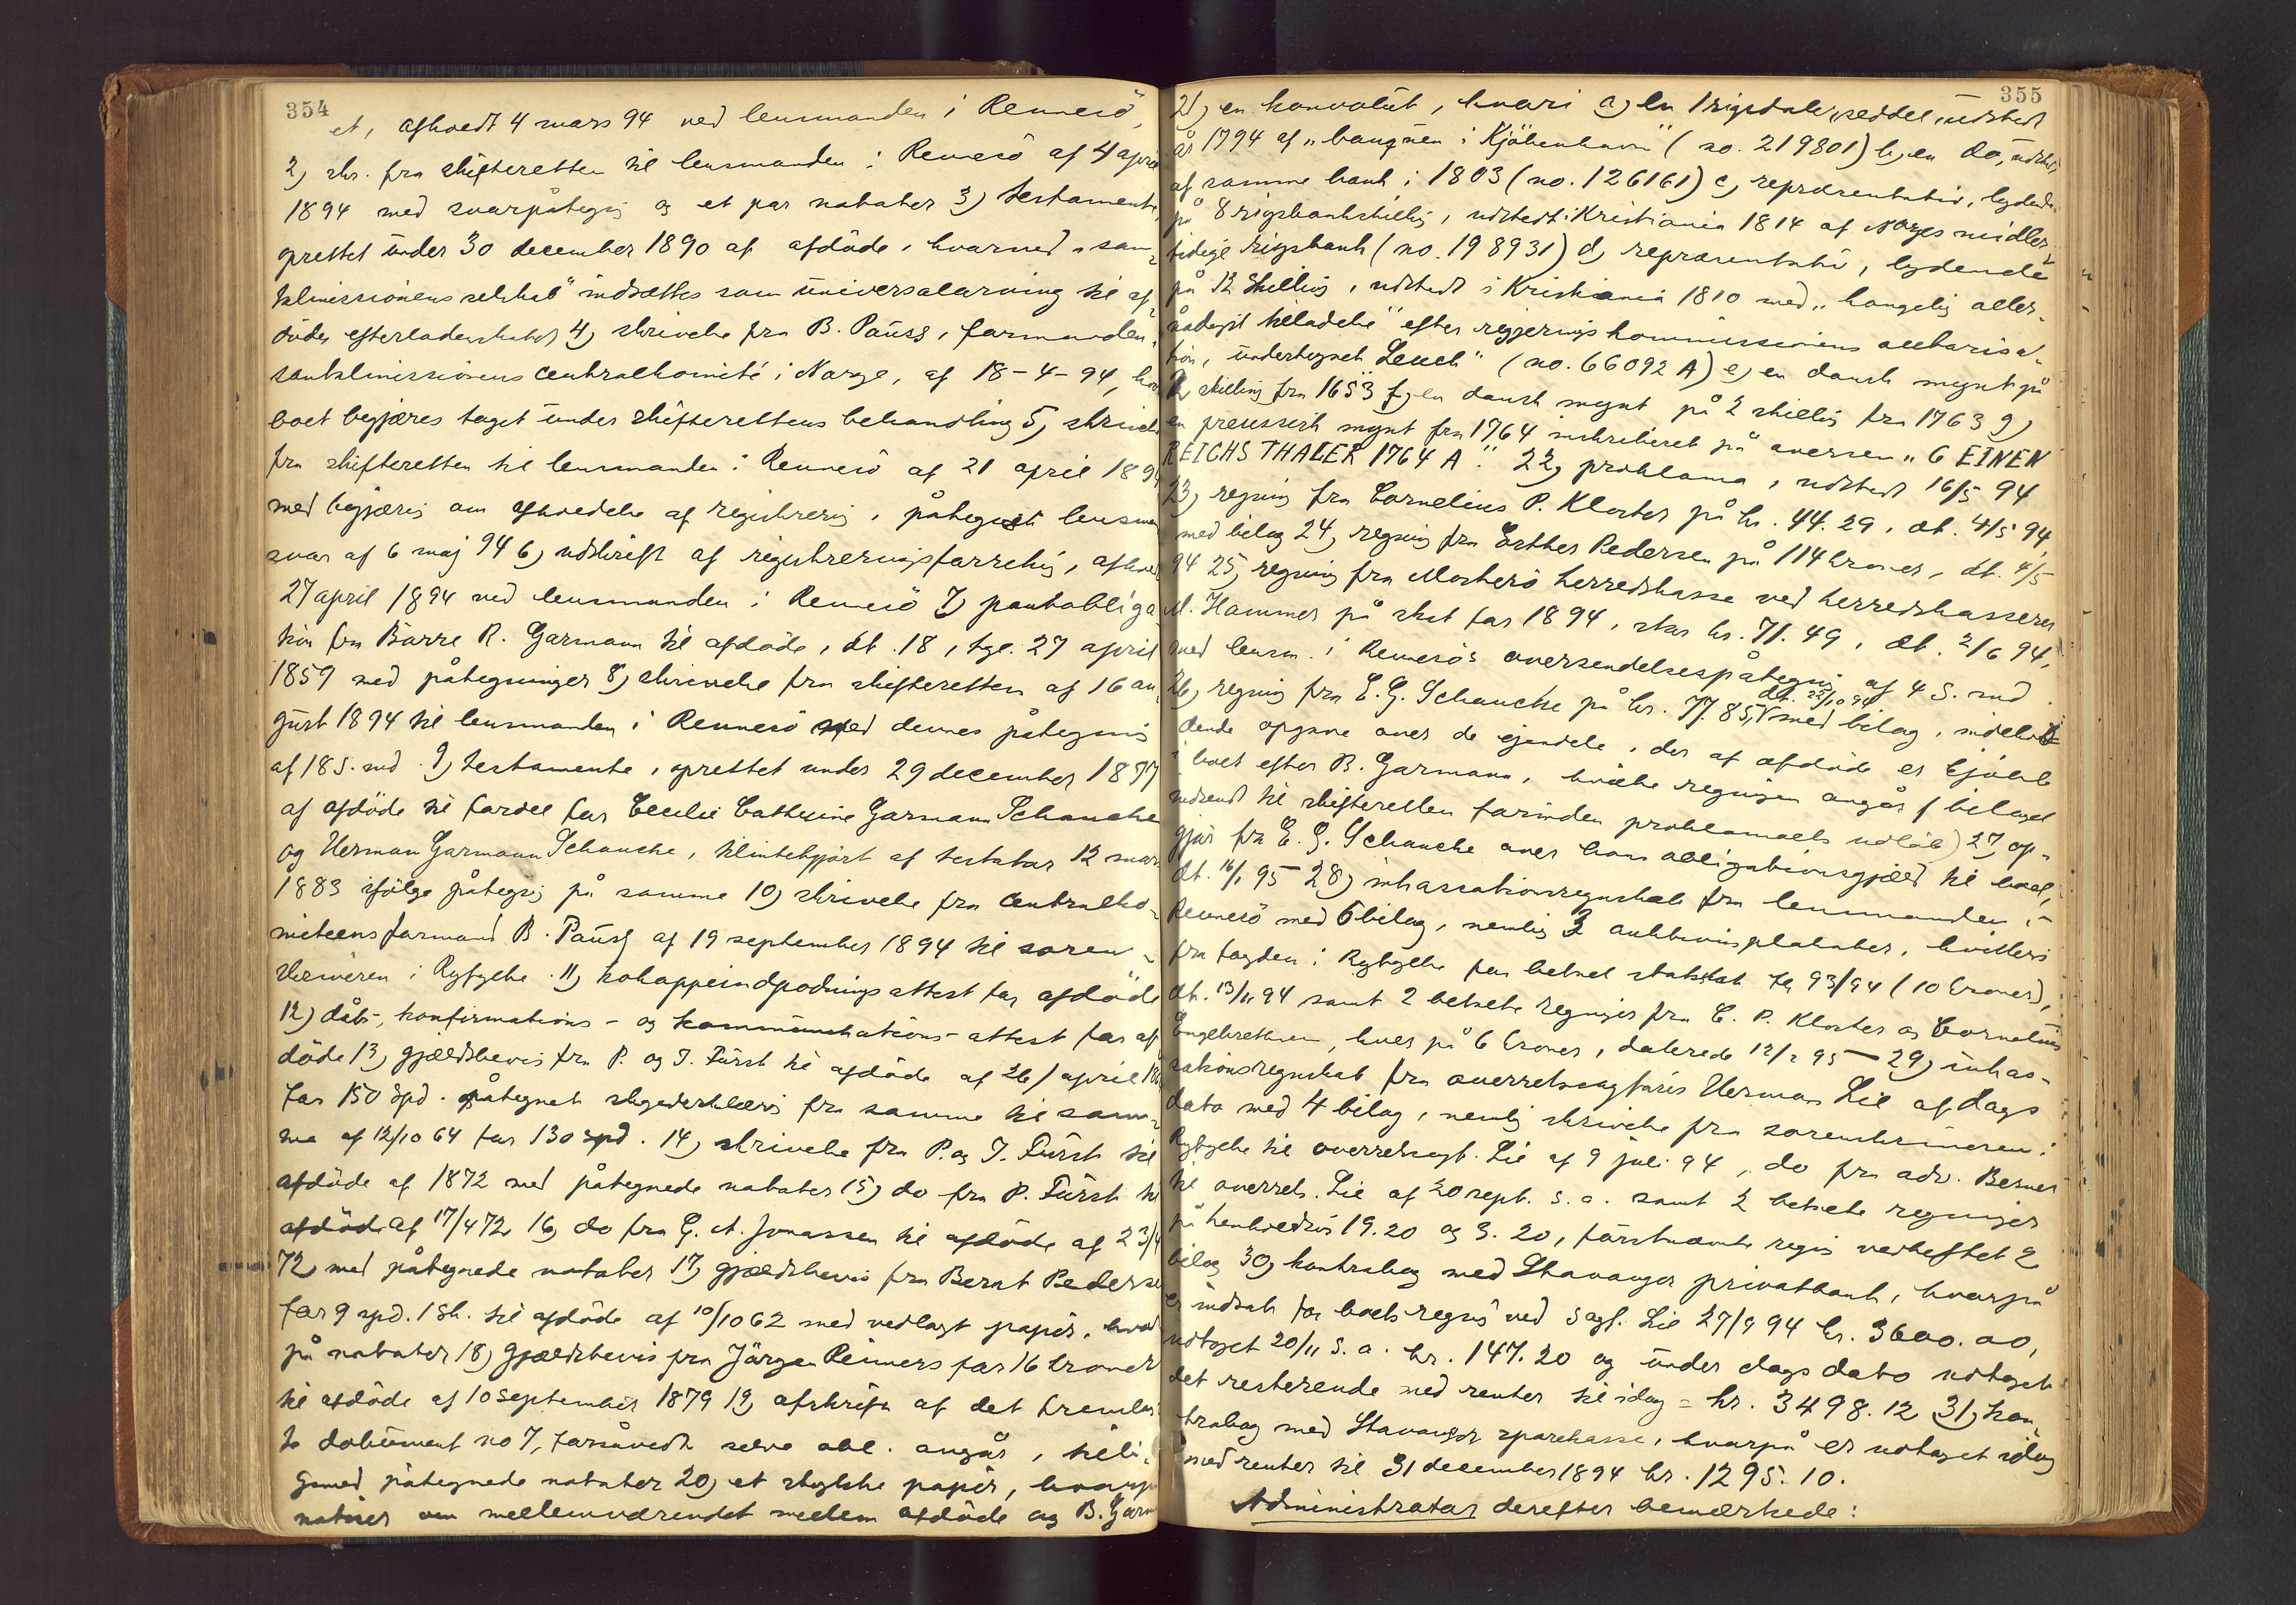 354
et, afholdt 4 mars 94 ved lensmanden i Rennesö,
2) skr. fra skifteretten til lensmanden i Rennesö af 4 april
1894 med svarpåtegng og et par notater 3) testament,
oprettet under 30 december 1890 af afdöde, hvorved "san-
talmissionens selskab" indsættes som universalarving til af-
dödes efterladenskaber 4) skrivelse fra B. Pauss, formand i
santalmissionens centralkomité i Norge, af 18-4-94, hvor
boet begjæres taget under skifterettens behandling 5) skrivelse
fra skifteretten til lensmanden i Rennesö af 21 april 1894
med begjæring om afholdelse af registrering, påtegnet lensmd
svar af 6 maj 94 6) udskrift af registreringsforretng, afhold
27 april 1894 ved lensmanden i Rennesö 7) pantobliga-
tion fra Börre R. Garmann til afdöde, dt. 18, tgl. 27 april
1859 med påtegninger 8) skrivelse fra skifteretten af 16 au-
gust 1894 til lensmanden i Rennesö med dennes påtegning
af 18 s. md. 9) testamente, oprettet under 29 december 1877
af afdöde til fordel for Cecilie Cathrine Garmann Schanche
og Herman Garmann Schanche, tilintetgjort af testator 12 mars
1883 ifölge påtegng på samme 10) skrivelse fra centralko-
miteens formand B. Pauss af 19 september 1894 til soren-
skriveren i Ryfylke. 11) kokoppeindpodnings attest for afdöde
12) dåbs-, konfirmations- og kommunikations-attest for af-
döde 13) gjældsbevis fra P. og J. Fürst til afdöde af 26/ april
for 150 spd. påtegnet skyderklærg fra samme til sam-
me af 12/10 64 for 130 spd. 14) skrivelse fra P. og J. Fürst til
afdöde af 1872 med påtegnede notater 15) do fra P. Fürst til
afdöde af 17/4 72 16) do fra G. A. Jonassen til afdöde af 23/4
72 med påtegnede notater 17) gjældsbevis fra Bernt Pederse
for 9 spd. 1 sk. til afdöde af 10/10 62 med vedlagt papir, hvor
på notater 18) gjældsbevis fra Jörgen Reimers for 16 kroner
til afdöde af 10 september 1879 19) afskrift af det fremlag
te dokument no 7, forsåvidt selve obl. angår, tilli-
gemed påtegnede notater 20) et stykke papir, hvorpå
notiser om mellemværendet mellem afdöde og B. Garm
355
21) en konvolut, hvori a) en 1 rigsdaler "seddel", udstedt
år 1794 af "banquen i Kjöbenhavn" (no. 219801) b) en do, udstedt
af samme bank i 1803 (no. 126161) c) repræsentativ, lydende
på 8 rigsbankskillig, udstedt i Kristiania 1814 af Norges midler-
tidige rigsbank (no. 198931) d) repræsentativ, lydende
på 12 skilling, udstedt i Kristiania 1810 med "kongelig aller-
nådigst tilladelse" efter regjeringskommissionens autorisa-
tion, undertegnet "Leuch" (no. 66092 A) e) en dansk mynt på
2 skilling fra 1653 f) en dansk mynt på 2 skillig fra 1763 g)
en preussisk mynt fra 1764 inskriberet på aversen "6 EINEN
REICHS THALER 1764 A." 22) proklama, udstedt 16/5 94
23) regning fra Cornelius P. Kloster på kr. 44.29, dt. 4/5 94,
med bilag 24) regning fra Esther Pedersen på 114 kroner, dt. 4/5
94 25) regning fra Mosterö herredskasse ved herredskasserer
M. Hammer på skat for 1894, stor kr. 71.49, dt. 2/6 94,
med lensm. i Rennesös oversendelsespåtegng af 4 s. md.
26) regning fra E. G. Schanche på kr. 77.85, dt. 22/10 94 med bilag, indehol-
dende opgave over de ejendele, der af afdöde er kjöbt
i boet efter B. Garmann, hvilke regningen angår (bilaget
indsendt til skifteretten forinden proklamaets udlöb) 27) op-
gjör fra E. G. Schanche over hans obligationsgjæld til boet,
dt. 16/1 95 28) inkassationsregnskab fra lensmanden i
Rennesö med 6 bilag, nemlig 3 auktionsplakater, kvittering
fra fogden i Ryfylke for betalt statsskat for 93/94 (10 kroner),
dt. 13/11 94 samt 2 betalte regninger fra C. P. Kloster og Cornelius
Engebretsen, hver på 6 kroner, daterede 12/2 95 - 29) inkas-
sationsregnskab fra overretssagförer Herman Lie af dags
dato med 4 bilag, nemlig skrivelse fra sorenskriveren i
Ryfylke til overretssagf. Lie af 9 juli 94, do fra adv. Besner
til overrets. Lie af 20 sept. s. a. samt 2 betalte regninger
på henholdsvis 19.20 og 3.20, förstnævnte regng vedheftet 2
bilag 30) kontrabog med Stavanger privatbank, hvorpå
er indsat for boets regng ved sagf. Lie 27/9 94 kr. 3600.00,
udtaget 20/11 s. a. kr. 147.20 og under dags dato udtaget
det resterende med renter til idag = kr. 3498.12 31) kon-
trabog med Stavanger sparekasse, hvorpå er udtaget idag
med renter til 31 december 1894 kr. 1295.10.
Administrator derefter bemærkede: